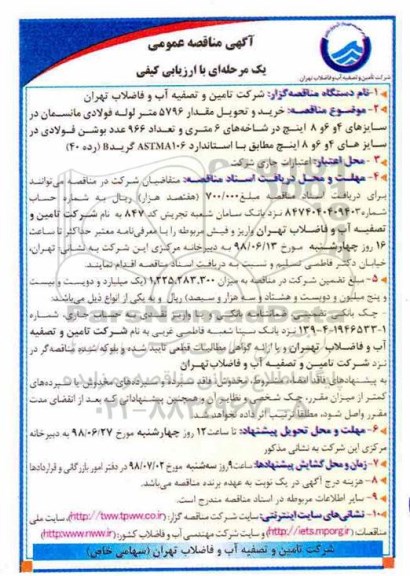 آگهی مناقصه عمومی
یک مرحله‌ای با ارزیابی کیفی
شرکت تامین و تصفیه آب و فاضلاب تهران
۱- نام دستگاه مناقصه‌گزار: شرکت تامین و تصفیه آب و فاضلاب تهران
۲- موضوع مناقصه: خرید و تحویل مقدار ۵۷۹۶ متر لوله فولادی مانسمان در
سایزهای ۴ و ۶ و ۸ اینچ در شاخه‌های ۶ متری و تعداد ۹۶۶ عدد بوشن فولادی در
سایز های ۴ و ۶ و ۸ اینچ مطابق با استاندارد ASTMA۱۰۶ گریدB (رده ۴۰)
۳- محل اعتبار: اعتبارات جاری شرکت
۴- مهلت و محل دریافت اسناد مناقصه: متقاضیان شرکت در مناقصه می‌توانند
برای دریافت اسناد مناقصه مبلغ ۷۰۰/۰۰۰ (هفتصد هزار) ریال به شماره حساب
شماره ۸۴۷۴۰۴۰۴۰۹۴۰۳ نزد بانک سامان شعبه تجریش کد ۸۴۷ به نام شرکت تامین و
تصفیه آب و فاضلاب تهران واریز و فیش مربوطه را با معرفی‌نامه معتبر حداکثر تا ساعت
۱۶ روز چهارشنبه مورخ ۹۸/۰۶/۱۳ به دبیرخانه مرکزی این شرکت به نشانی: تهران،
خیابان دکتر فاطمی تسلیم و نسبت به دریافت اسناد مناقصه اقدام نمایند.
۵- مبلغ تضمین شرکت در مناقصه به میزان ۱,۲۲۵,۲۸۳,۳۰۰ (یک میلیارد و دویست و بیست
و پنج میلیون و دویست و هشتاد و سه هزار و سیصد) ریال و به یکی از انواع ذیل می‌باشد:
- چک بانکی تضمینی، ضمانتنامه بانکی، واریز نقدی به حساب جاری شماره
۱-۱۳۹۰۴-۱۹۴۶۵۳۳ نزد بانک سینا شعبه فاطمی غربی به نام شرکت تامین و تصفیه
آب و فاضلاب تهران و یا ارائه گواهی مطالبات قطعی تایید شده و بلوکه شده مناقصه‌گر در
نزد شرکت تامین و تصفیه آب و فاضلاب تهران
به پیشنهادهای فاقد امضاء، مشروط، مخدوش، فاقد سپرده و سپرده‌های مخدوش یا سپرده‌های
کمتر از میزان مقرر، چک شخصی و نظایر آن و همچنین پیشنهاداتی که بعد از انقضای مدت
مقرر واصل شود، مطلقا ترتیب اثر داده نخواهد شد.
۶- مهلت و محل تحویل پیشنهاد: تا ساعت ۱۲ روز چهارشنبه مورخ ۹۸/۰۶/۲۷ به دبیرخانه
مرکزی این شرکت به نشانی مذکور
۷- زمان و محل گشایش پیشنهادها: ساعت ۹ روز سه‌شنبه مورخ ۹۸/۰۷/۰۲ در دفتر امور بازرگانی و قراردادها
۸- هزینه درج آگهی در یک نوبت به عهده برنده مناقصه می‌باشد.
۹- سایر اطلاعات مربوطه در اسناد مناقصه مندرج است.
۱۰- نشانی‌های سایت اینترنتی: سایت شرکت مناقصه گزار: (http://tww.tpww.co.ir)، سایت ملی
مناقصات (http://iets.mporg.ir) و سایت شرکت مهندسی آب و فاضلاب کشور: (http:www.nww.ir)
شرکت تامین و تصفیه آب و فاضلاب تهران (سهامی خاص)